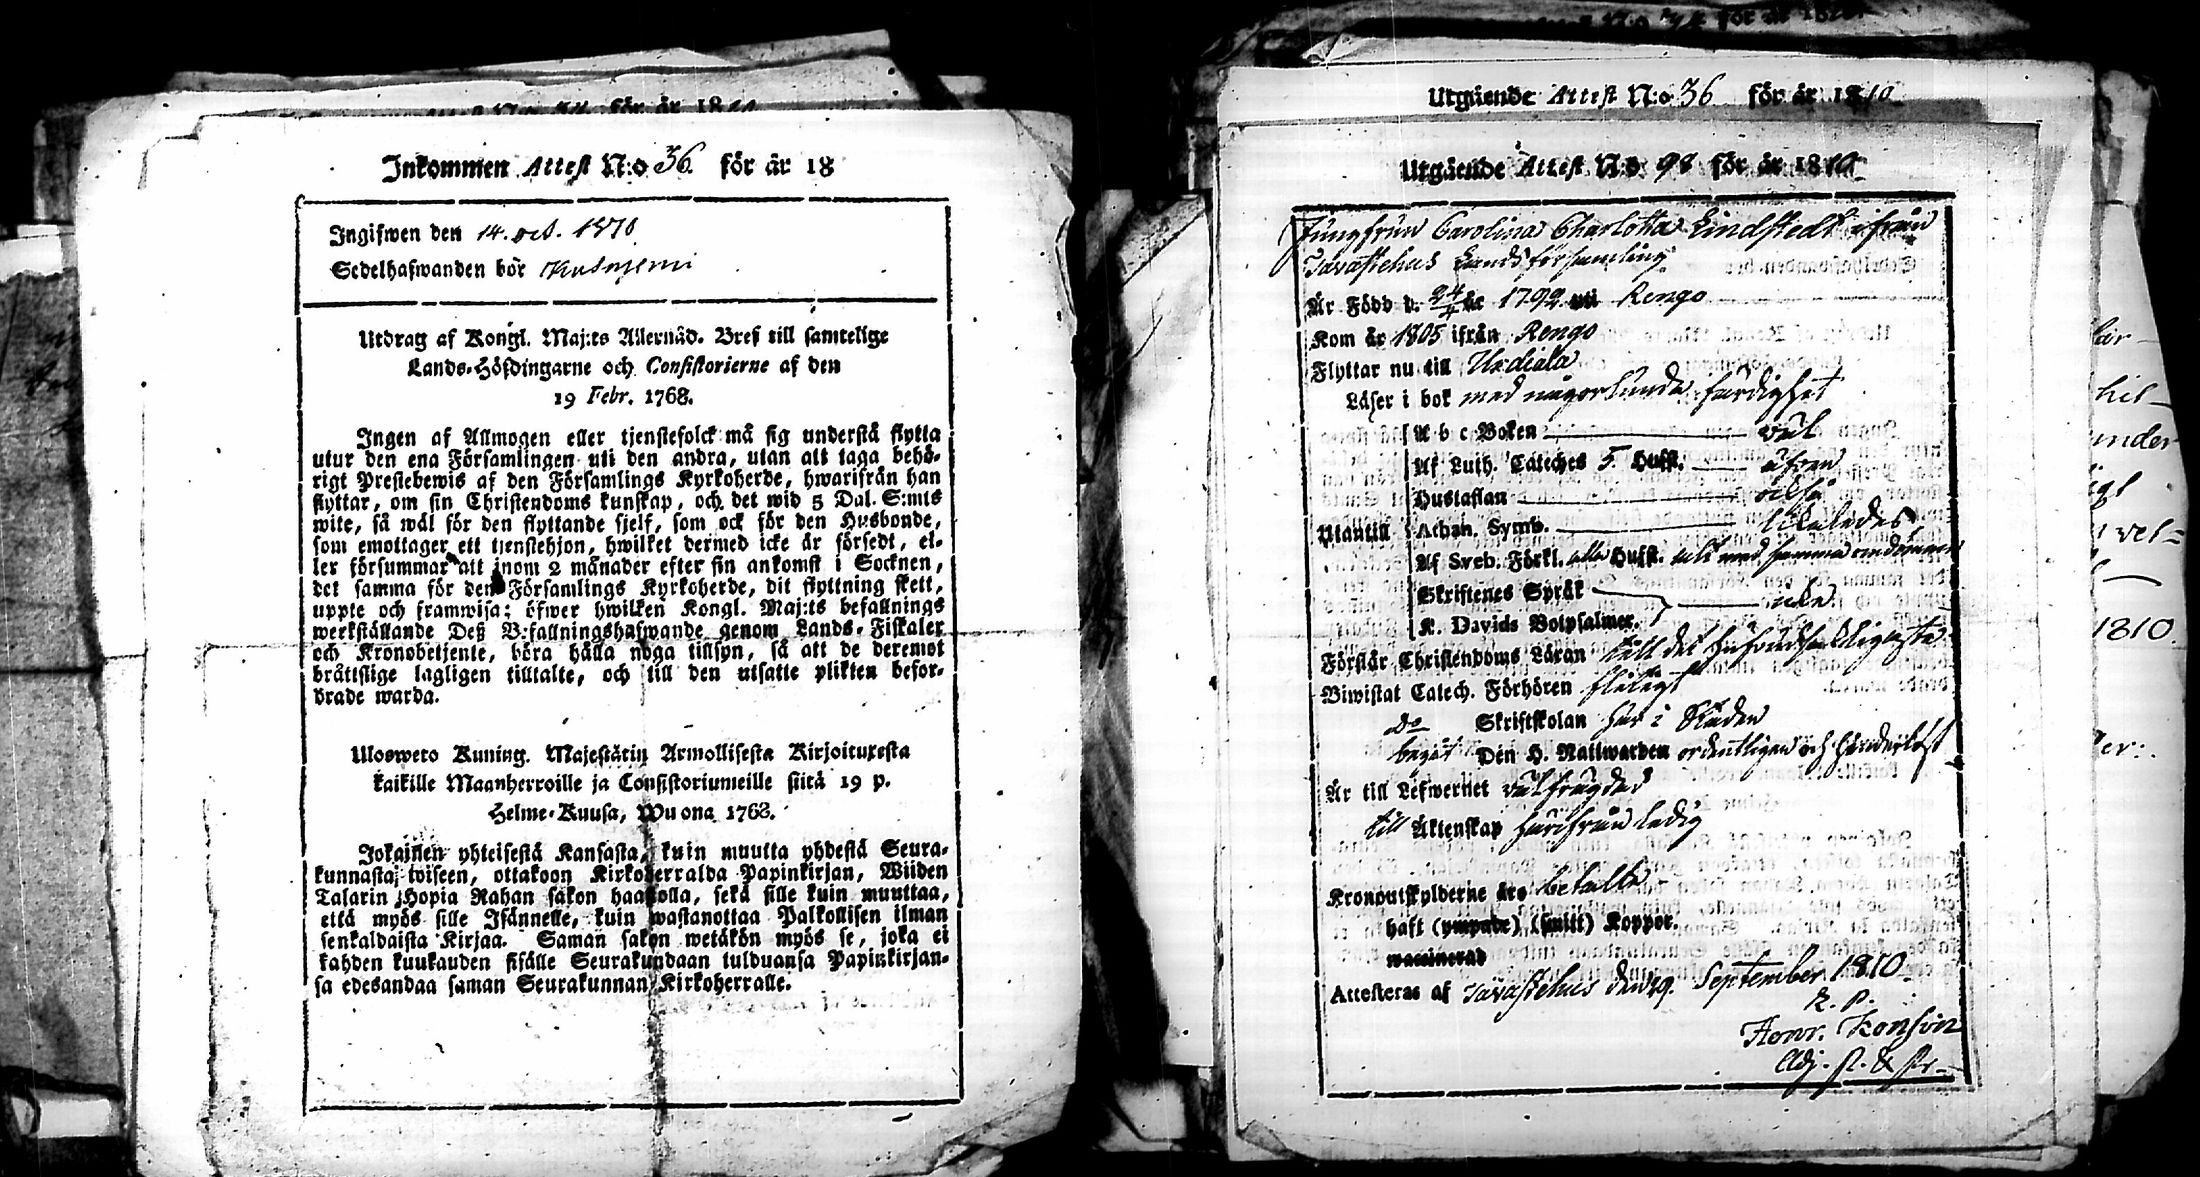 Inkommen Attest N:o 36. för år 18
Ingifwen den 14. oct. 1810
Sedelhafwanden bör
Utdrag af Kongl. Maj:ts Allernåd. Bref till samtelige
Lands-Höfdingarne och Consistorierne af den
19 Febr. 1768.
Ingen af Allmogen eller tjenstefolck må sig understå flytta
utur den ena Församlingen uti den andra, utan att taga behö-
rigt Prestebewis af den Församlings Kyrkoherde, hwarifrån han
flyttar, om sin Christendoms kunskap, och det wid 5 Dal. S:mts
wite, så wäl för den flyttande sjelf, som ock för den Husbonde,
som emottager ett tjenstehjon, hwilket dermed icke är försedt, el-
ler försummar att inom 2 månader efter sin ankomst i Socknen,
det samma för den Församlings Kyrkoherde, dit flyttning skett,
uppte och framwisa; öfwer hwilken Kongl. Maj:ts befallnings
werkställande Deß B:fallningshafwande genom Lands-Fiskaler
och Kronobetjente, böra hålla noga tillsyn, så att de deremot
bråttslige lagligen tilltalte, och till den utsatte plikten befor-
drade warda.
Ulosweto Kuning. Majestätin Armollisesta Kirjoituxesta
kaikille Maanherroille ja Consistoriumeille siitä 19 p.
Helme-Kuusa, Wuona 1768.
Jokainen yhteisestä Kansasta, kuin muutta yhdestä Seura-
kunnasta toiseen, ottakoon Kirkoherralda Papinkirjan, Wiiden
Talarin Hopia Rahan sakon haastolla, sekä sille kuin muuttaa,
että myös sille Isännelle, kuin wastanottaa Palkollisen ilman
senkaldaista Kirjaa. Saman sakon wetäkön myös se, joka ei
kahden kuukauden sisälle Seurakundaan tulduansa Papinkirjan-
sa edesandaa saman Seurakunnan Kirkoherralle.
Utgående Attest N:o 36 för år 1810
Utgående Attest N:o 98 för år 1810
Jungfrun Carolina Charlotta Lindstedt ifrån
Tavastehus Landsförsamling
Är Född d. 24/4 år 1792 uti Rengo
Kom år 1805 ifrån Rengo
Flyttar nu till Urdiala
Läser i bok med någorlunda färdighet
A b c Boken väl
Af Luth. Cateches 5. Hufst. äfven
Hustaflan också
Utantill Athan. Symb. likaledes,
Af Sveb. Förkl. alla Hufst. allt med samma omdömme
Skriftenes Språk
K. Davids Botpsalmer. icke
Förstår Christendoms Läran till det
Biwistat Catech. Förhören flitigt
Do Skriftskolan här i Staden
begåt Den H. Nattwarden ordentligen och
Är till Lefwernet välfrägdad
till Äktenskap härifrån ledig
Kronoutskylderne äro betalta
haft (ympade) (smitt) Koppor.
waccinerad
Attesteras af Tavastehus den 29. September 1810.
Adj. P. & Pr.